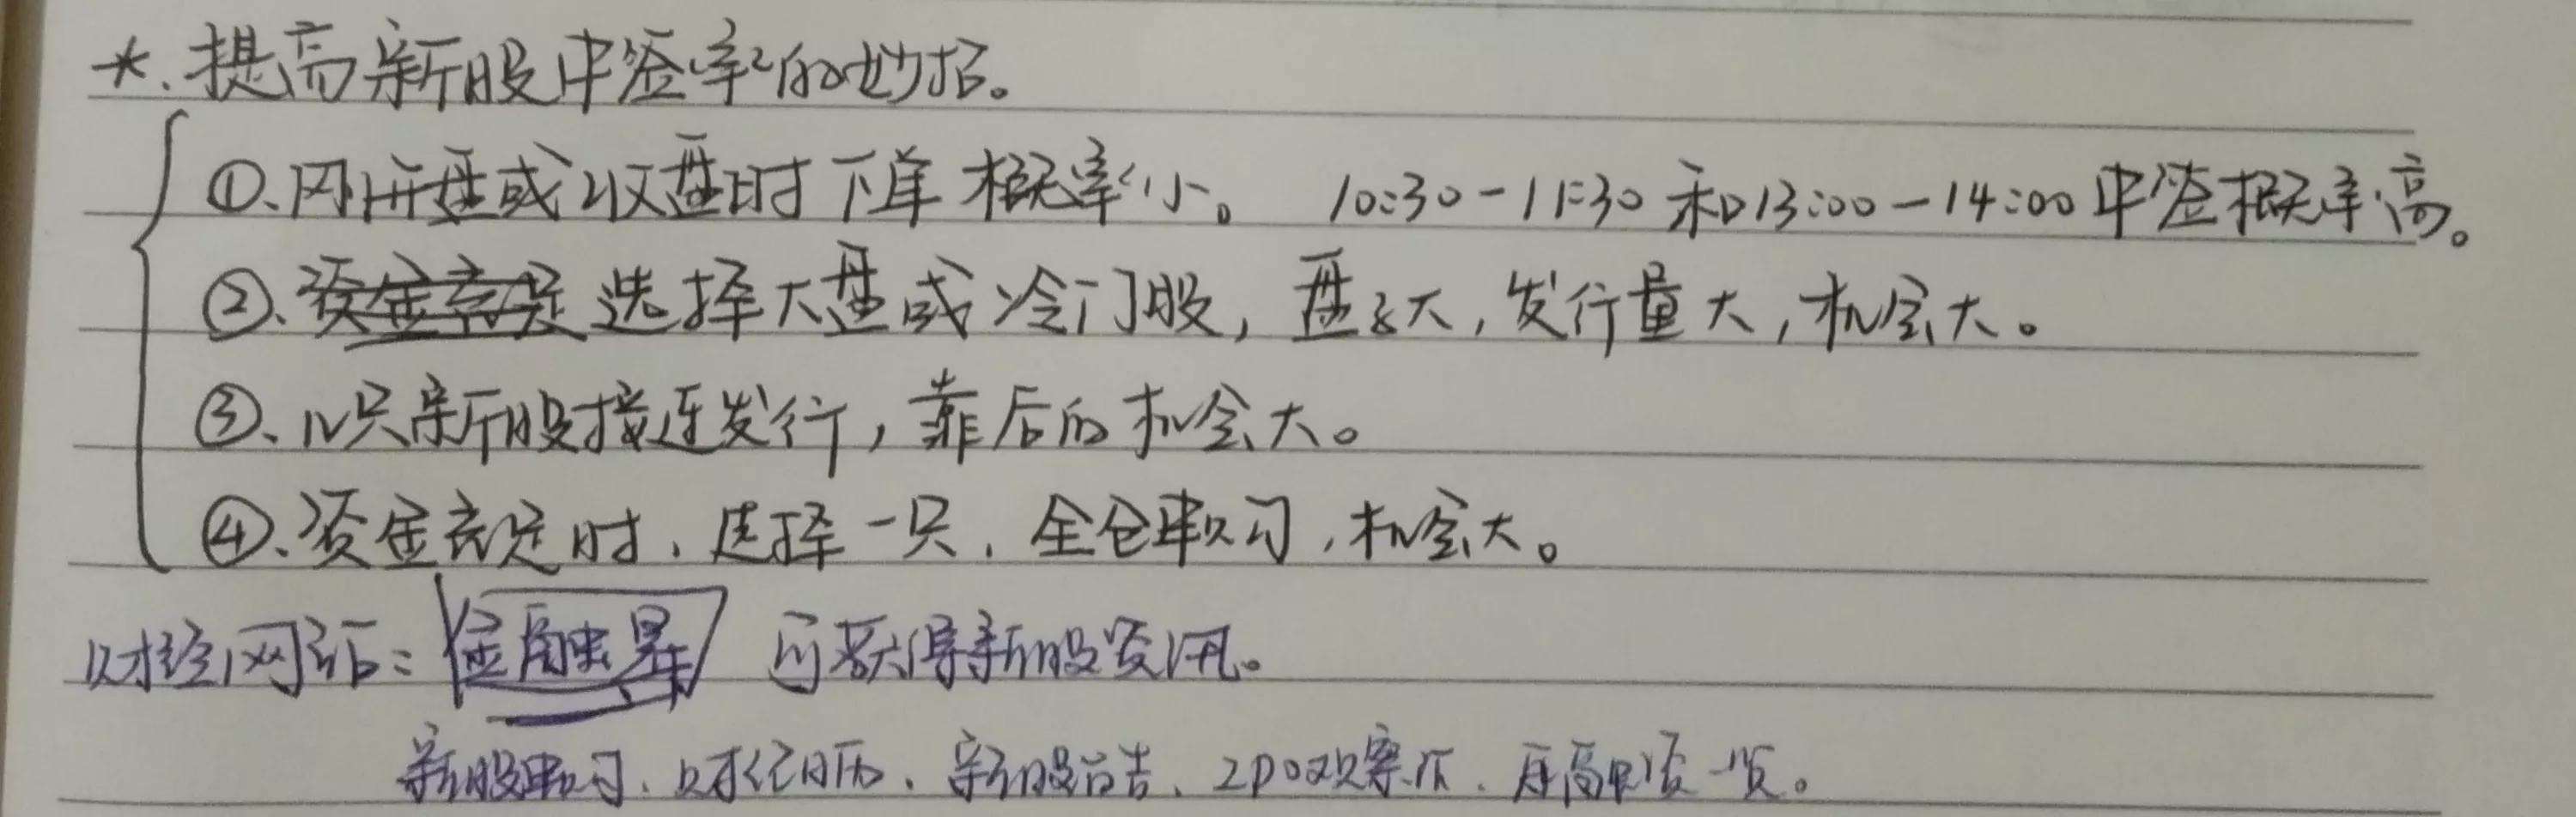 *. 提高新股中签率的妙招。
①、刚开盘或收盘时下单概率小。 10:30-11:30和13:00-14:00中签概率高。
②、资金充足选择大盘或冷门股,盘子大,发行量大,机会大。
③、几只新股接连发行,靠后的机会大。
④、资金充足时,选择一只,全仓申购,机会大。
财经网站:金融界 可获得新股资讯。
新股申购、财经日历、新股公告、IPO观察、